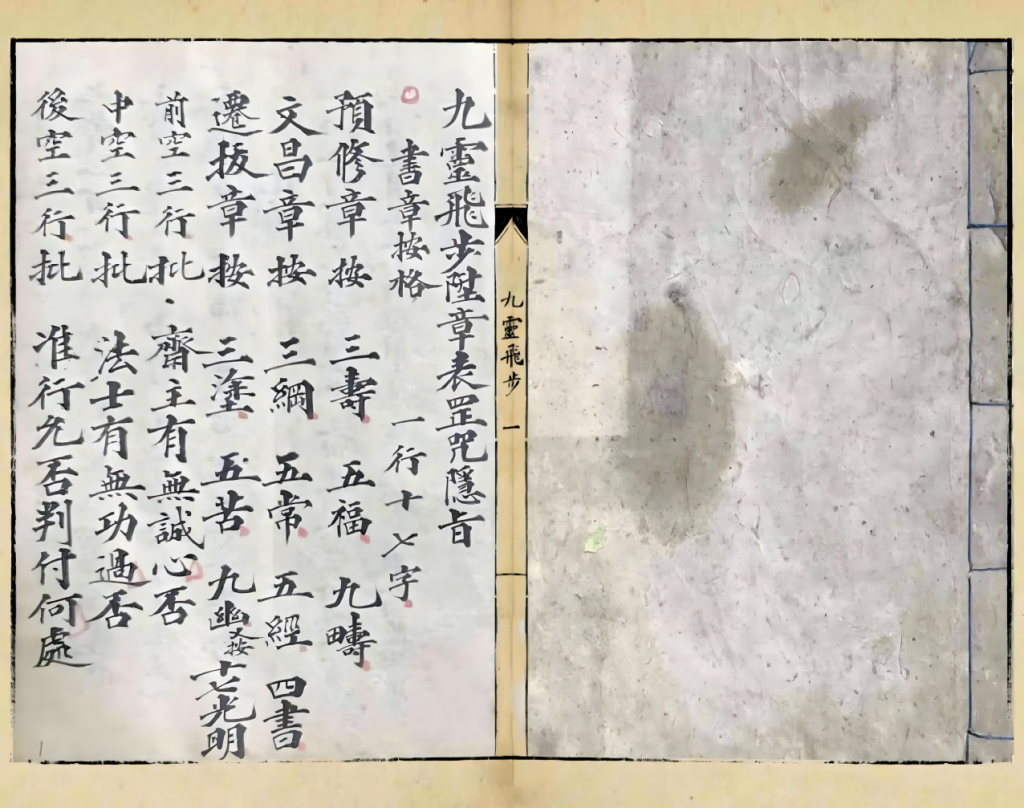 九靈飛步陞章表罡咒隱旨
書章按格 一行十七字
預修章按 三壽 五福 九疇
文昌章按 三綱 五常 五經 四書
遷拔章按 三塗 五苦 九幽按十七光明
前空三行批 齋主有無誠心否
中空三行批 法士有無功過否
後空三行批 准行允否判付何處
九靈飛步 一